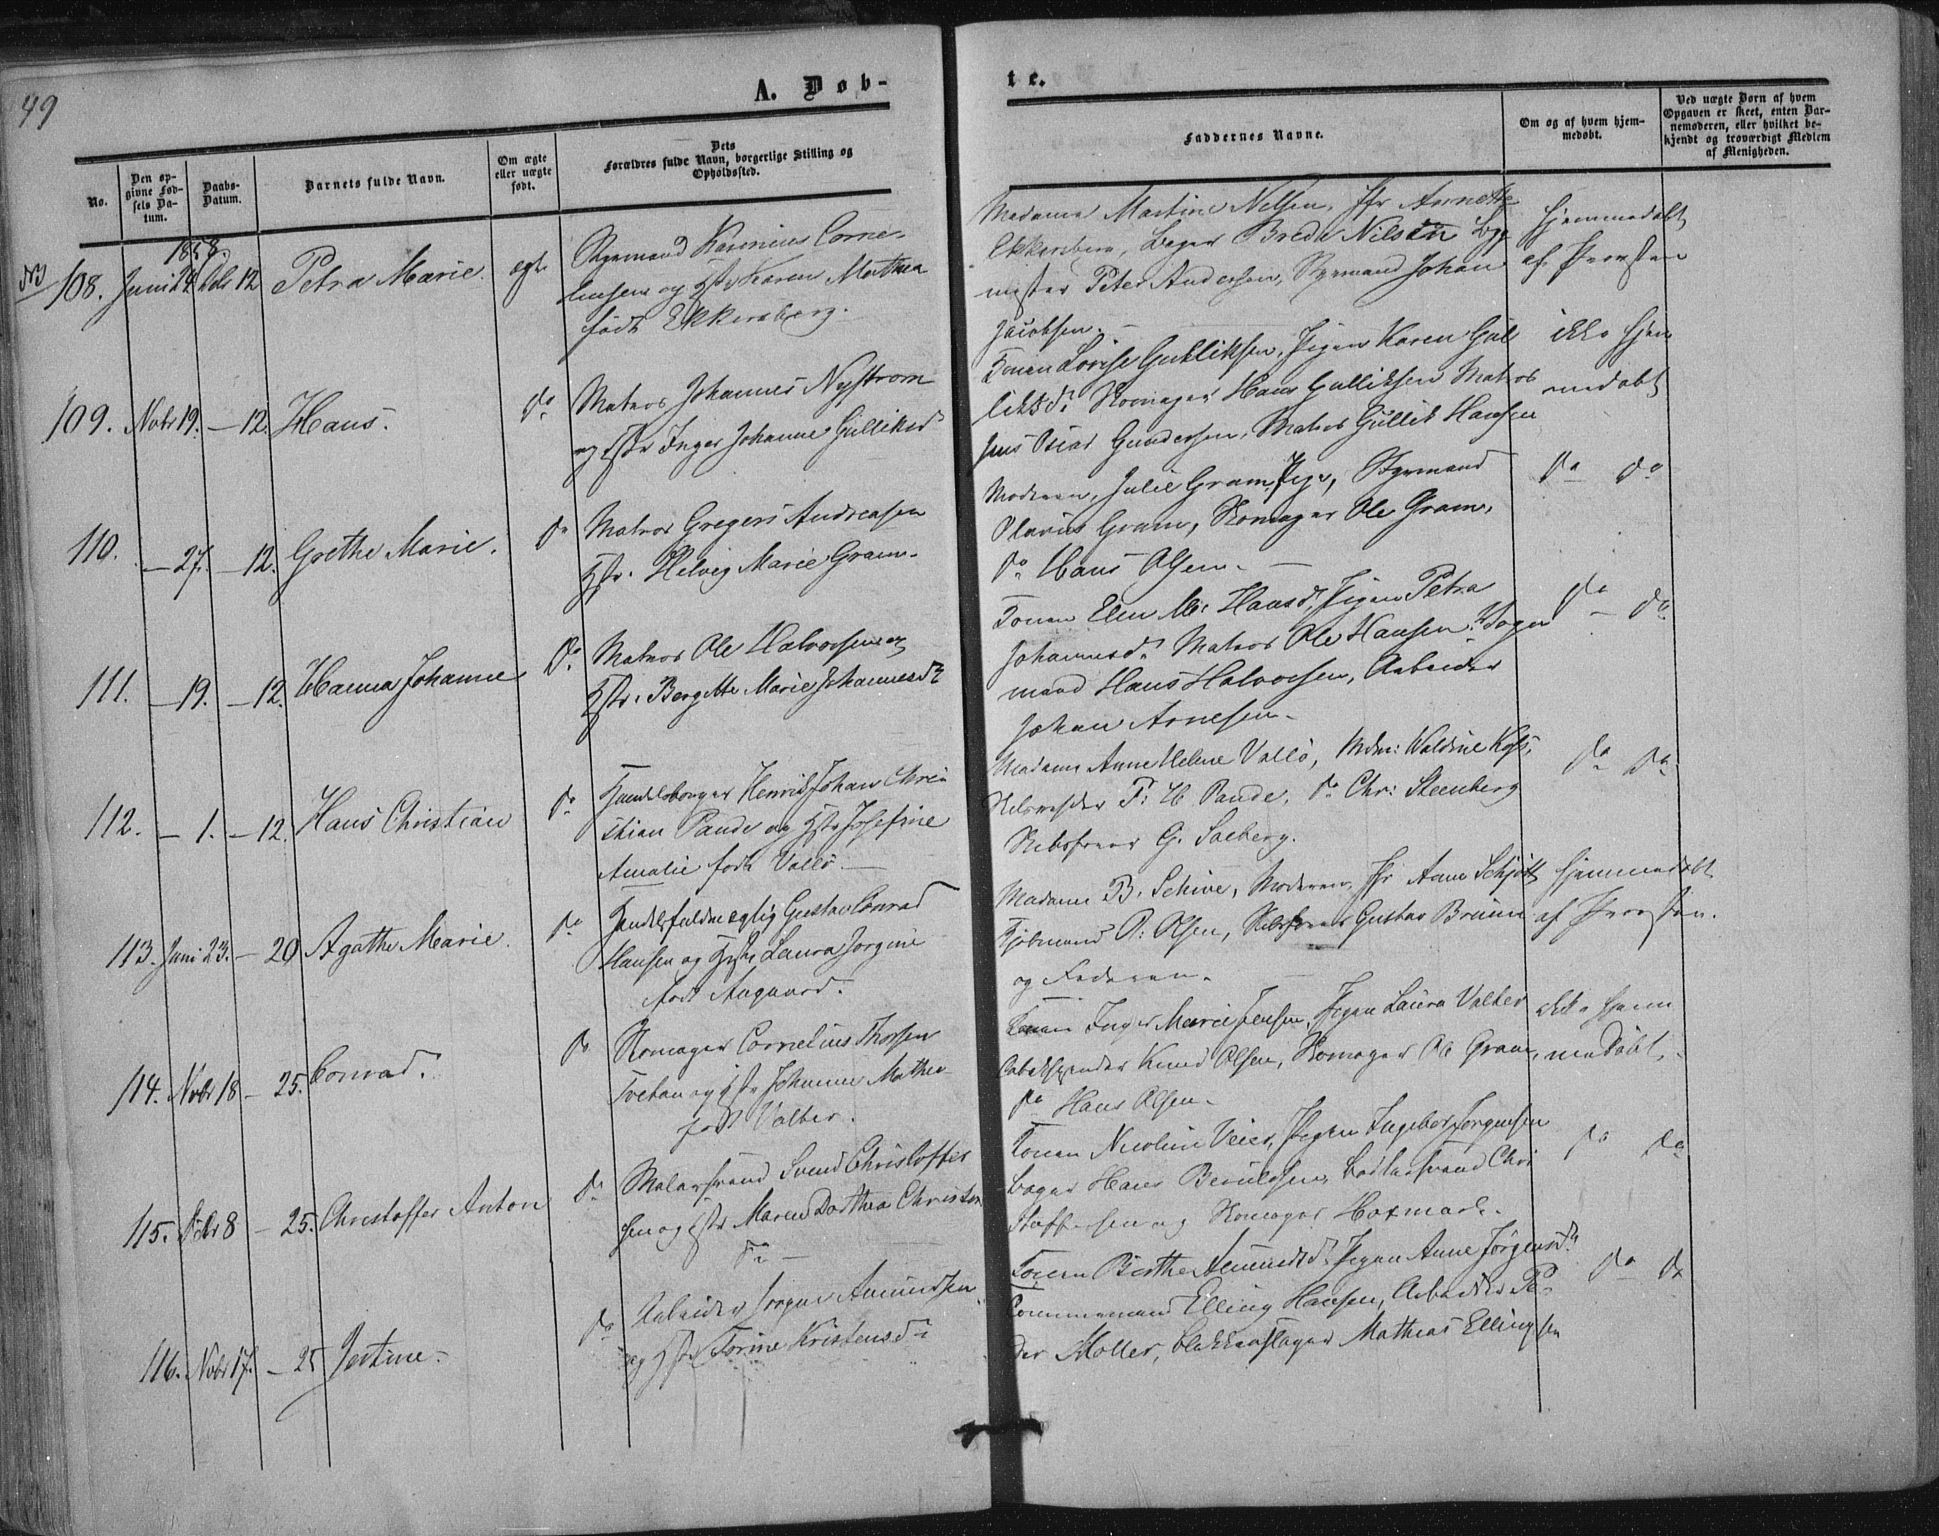 49
A. Døb-
te.
No.
Den opgivne Fødsels Datum.
Daabs-Datum.
Barnets fulde Navn.
Om ægte eller uægte født.
Dets Forældres fulde Navn, borgerlige Stilling og Opholdssted.
Faddernes Navne.
Om og af hvem hjemmedøbt.
Ved uægte Børn af hvem Opgaven er skeet, enten Barnemoderen, eller hvilket bekjendt og troværdigt Medlem af Menigheden.
1858.
108. Juni 24 Dcbr 12 Petra Marie. ægte
Styrmand Rasmus Corne-
liusen og Hstr Karen Mathea
født Ekkersberg.
Madame Martine Nilsen, Jfr Annette
Ekkersberg, Bager Brede Nilsen Byg
mester Peter Andersen, Styrmand Johan
Jacobsen.
hjemmedøbt
af Provsten
109. Novbr 19. – 12. Hans. do
Matros Johannes Nystrøm
og Hstr Inger Johanne Gulliksd
Konen Lovise Gulliksen, Pigen Karen Gul
liksd. Skomager Hans Gulliksen Matros
Jens Oscar Gundersen, Matros Gullik Hansen
ikke hjem
medøbt
110. – 27. – 12. Grethe Marie. do
Matros Gregers Andreasen
Hstr. Helvig Marie Gram.
Moderen, Julie Gram Pige, Styrmand
Olavus Gram, Skomager Ole Gram,
do Hans Olsen. –
do do
111. – 19. – 12. Hanna Johanne do
Matros Ole Halvorsen og
Hstr. Bergitte Marie Johannesd.
Konen Elen M: Hansd, Pigen Petra
Johannesd. Matros Ole Hansen,
mand Hans Halvorsen, Arbeider
Johan Arnesen.
do – do
112. – 1. – 12. Hans Christian do
Handelsborger Henrik Johan Chri
stian Pande og Hstr Josefine
Amalie født Vallø.
Madame Anne Helene Vallø, Mdm: Waldine
F: H Pande, do Chr: Steenberg
G. Soeberg.
do do
113. Juni 23. – 20 Agathe Marie. do
Handelsfuldmægtig Gustav Conrad
Hansen og Hstr Laura Jørgine
født Aagaard.
Madame B. Schive, Moderen, Jfr Anne Schjøtt
Kjøbmand O: Olsen, Gustav Bruun
og Faderen.
hjemmedøbt
af Provsten.
114. Novbr 18 – 25. Conrad. do
Skomager Cornelius Thorsen
Tvetan og Hstr Johanne Mathea
født Valter.
Konen Inger Marie Jensen, Pigen Laura Valter
Knud Olsen, Skomager Ole Gram,
do Hans Olsen.
ikke hjem
medøbt.
115. Dcbr 8 – 25. Christoffer Anton do
Malersvend Svend Christoffer
sen og Hstr Maren Dorthea Christen
do –
Konen Nicoline Veier, Pigen Ingebor Jørgensen
Bager Hans Berulfsen, Bødkersvend Chri
stoffersen og Skomager Hoxmark.
do do
116. Novbr 17. – 25 Jertine. do
Arbeider Jørgen Amundsen
og Hstr Torine Kristensd.
Konen Berthe Amundsd. Pigen Anne Jørgensd.
Tømmermand Elling Hansen, Arbeider Pe-
der Møller, Blokkemager Mathias Ellingsen
do do